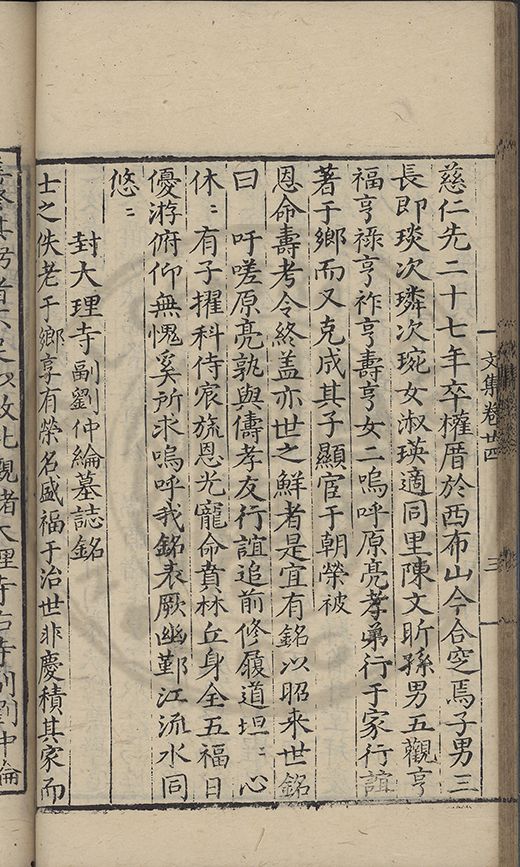 慈仁先二十七年卒權厝於西布山今合窆焉子男三
長即琰次璘次琬女淑瑛適同里陳文昕孫男五觀亨
福亨祿亨祚亨壽亨女二嗚呼原亮孝弟行于家行誼
著于鄉而又克成其子顯宦于朝榮被
恩命壽考令終盖亦世之鮮者是宜有銘以昭来世銘
曰　吁嗟原亮孰與儔孝友行誼追前修履道坦〻心
休〻有子擢科侍宸旒恩光寵命賁林丘身全五福日
優游俯仰無愧奚所求嗚呼我銘表厥幽鄞江流水同
悠〻
封大理寺副劉仲綸墓誌銘
士之佚老于鄉享有榮名盛福于治世非慶積其家而
文集卷廿四
三